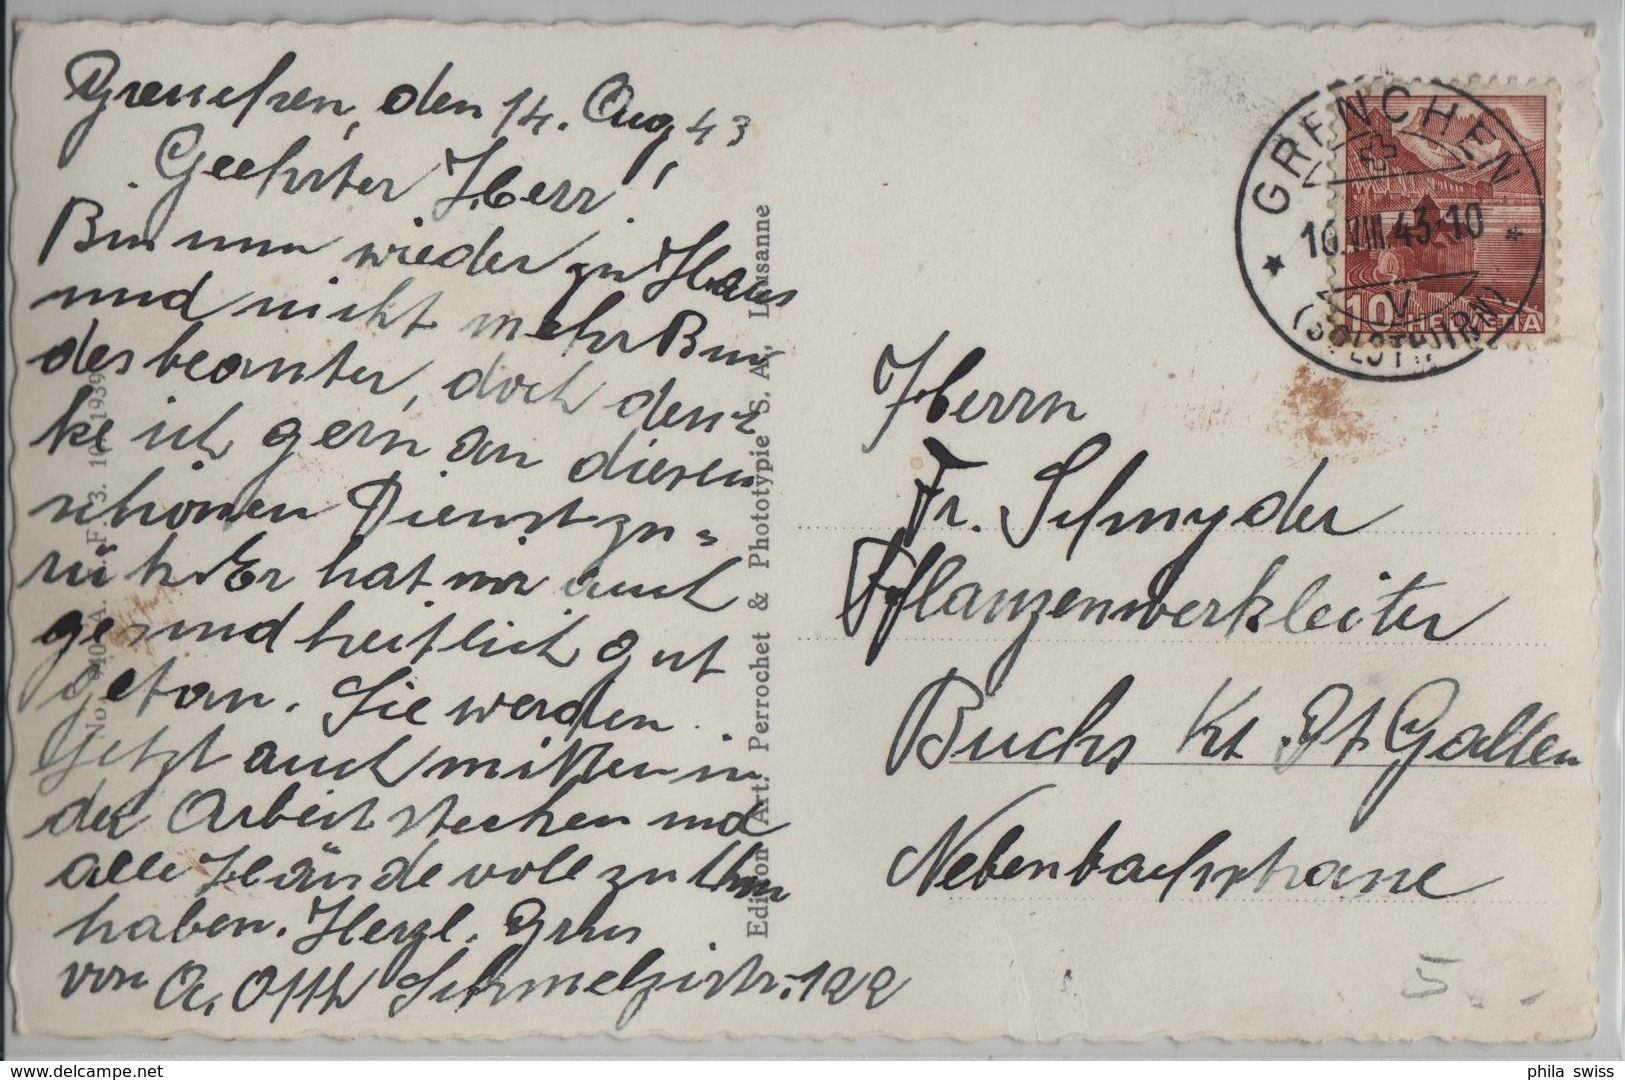 Grenchen, den 14. Aug 43
Geehrter Herr!
Bin nun wieder zu Haus
und nicht mehr Bun
desbeamter, doch den=
ke ich gern an diesen
schönen Dienst zu=
rück. Er hat mir auch
gesundheitlich gut
getan. Sie werden
jetzt auch mitten in
der Arbeit stecken und
alle Hände voll zu thun
haben. Herzl. Gruss
von A. Otth Schmelzistr. 122
Edition Art. Perrochet & Phototypie S. A., Lausanne
GRENCHEN
10.VIII.43-10
V
(SOLOTHURN)
10 HELVETIA
Herrn
Fr. Schnyder
Pflanzenwerkleiter
Buchs Kt St Gallen
Nebenbachstrasse
5
phila swiss
picclick.com